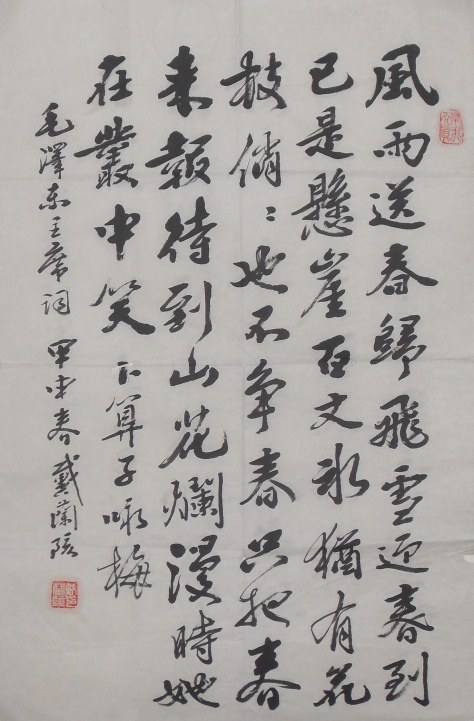 風雨送春歸飛雪迎春到
已是懸崖百丈冰猶有花
枝俏〻也不争春只把春
来報待到山花爛漫時她
在叢中笑 卜算子咏梅
毛澤东主席词 甲申春 戴蘭陔